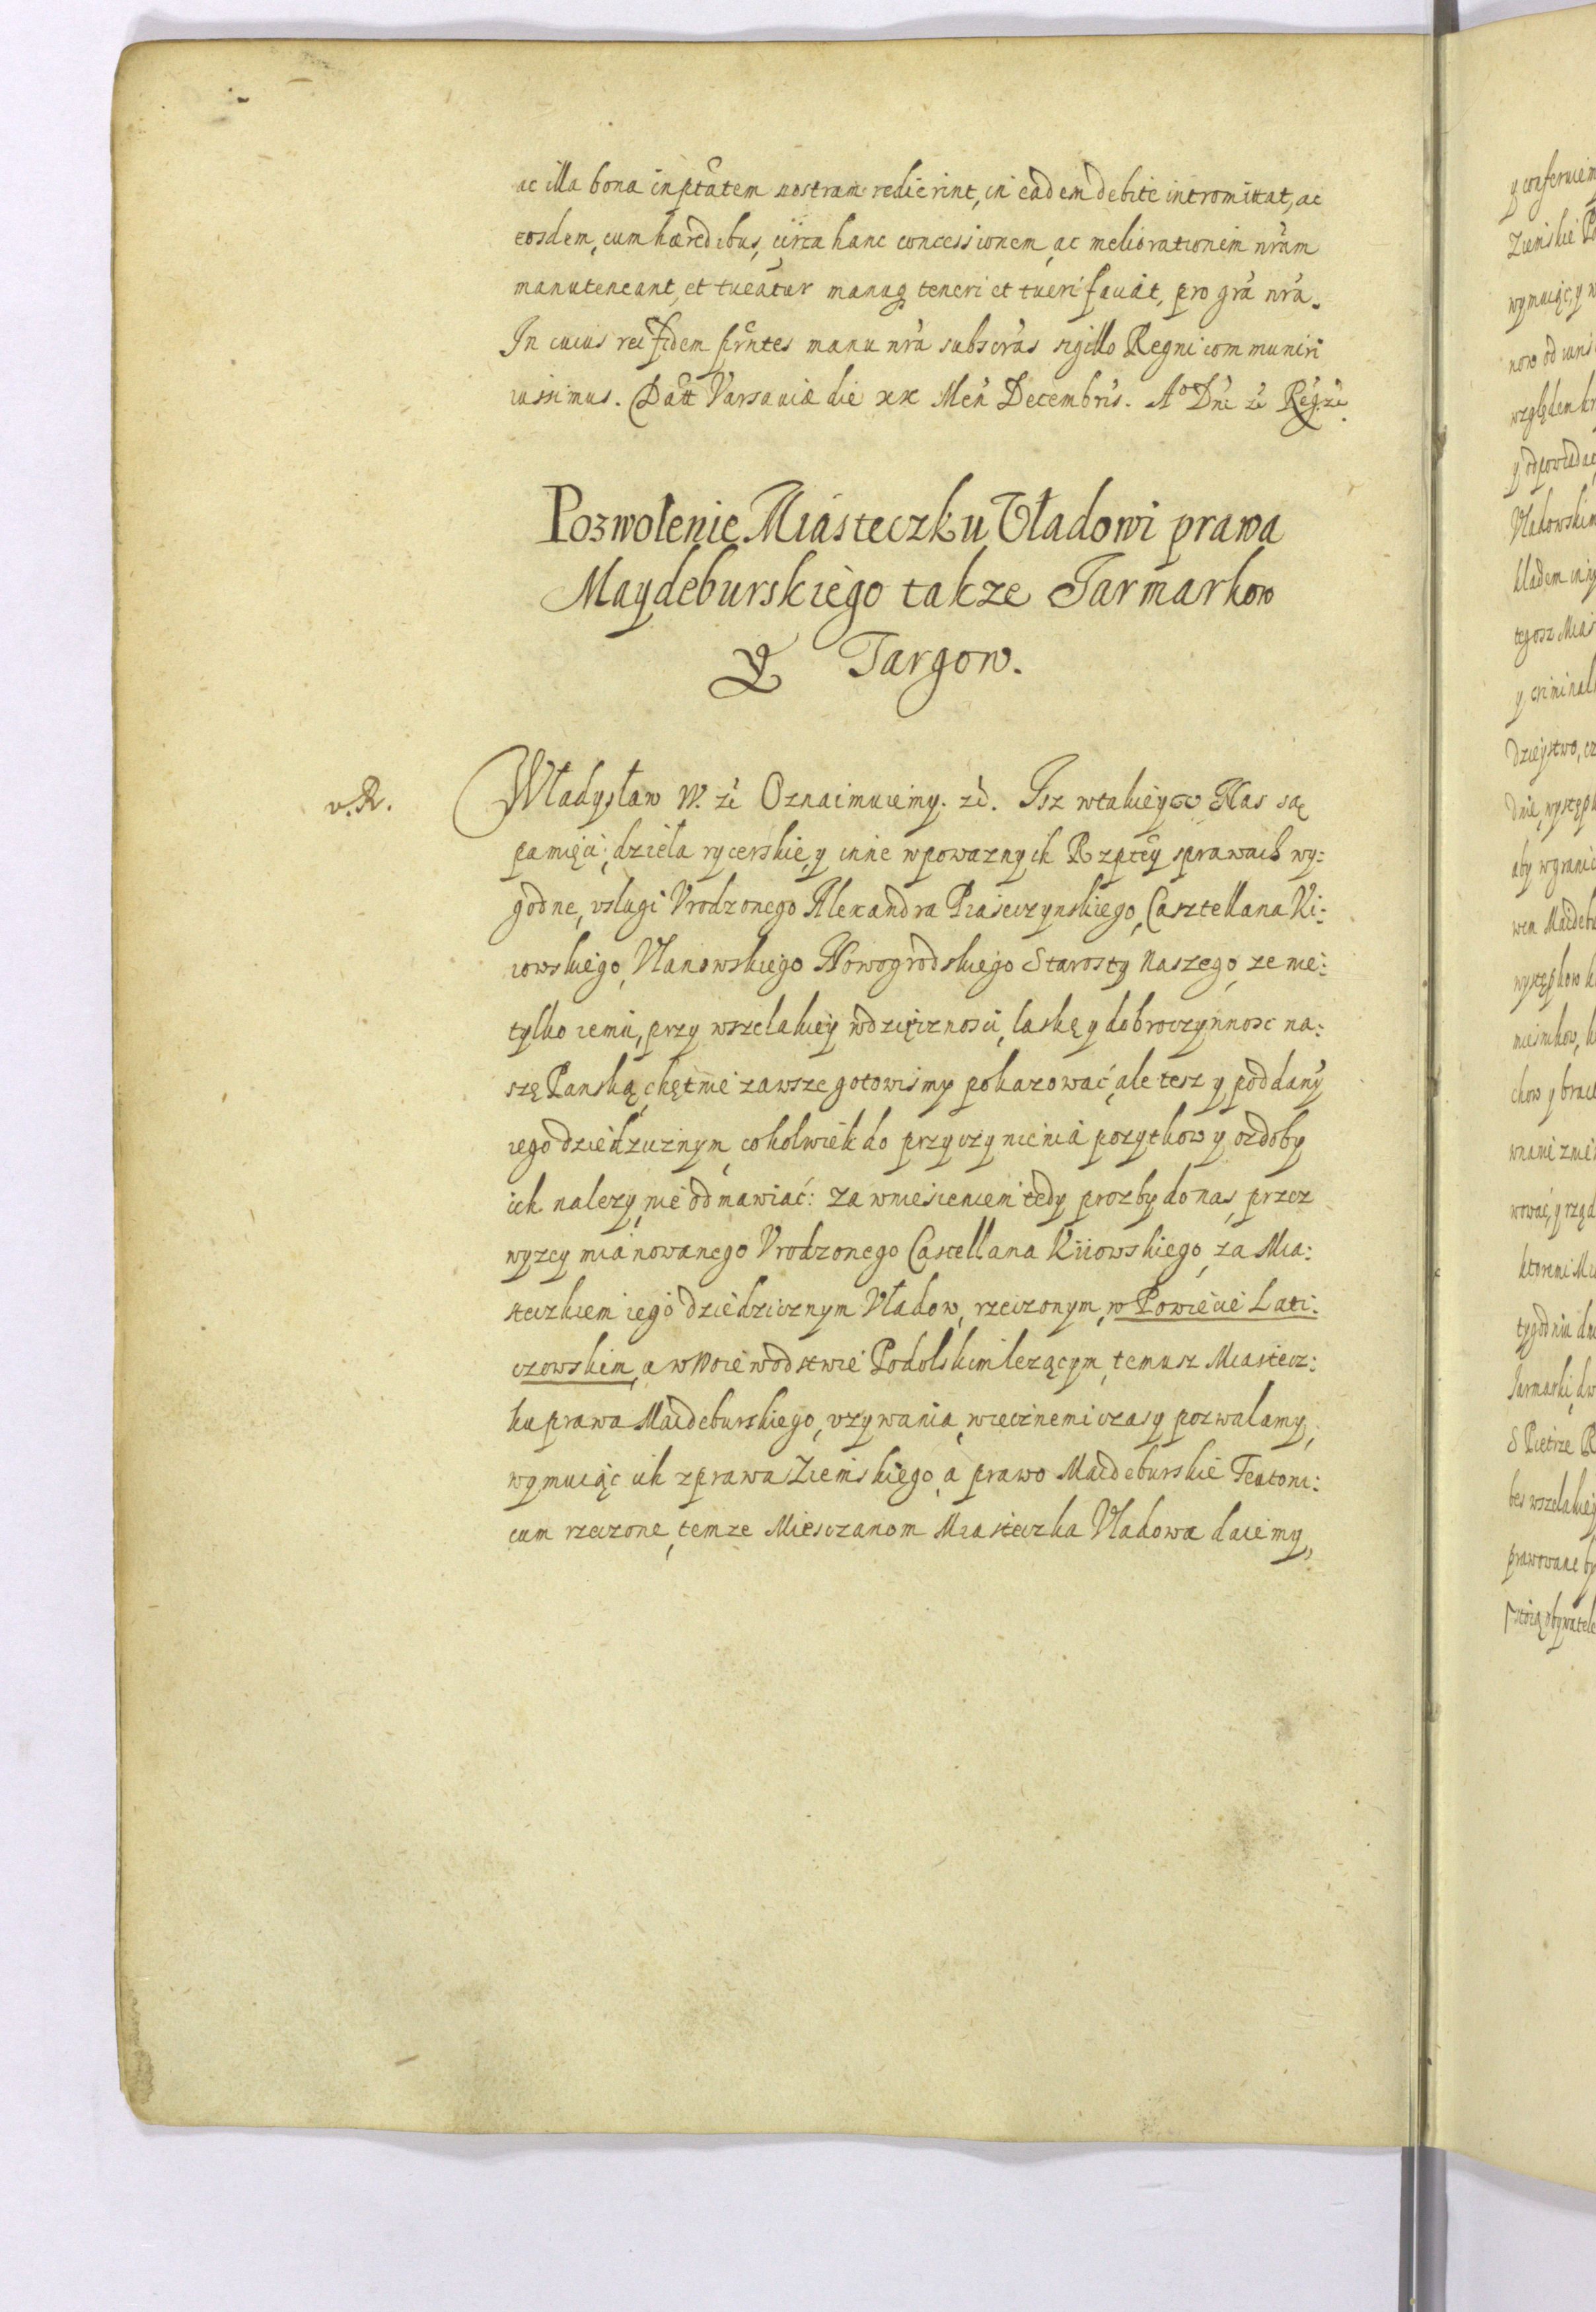 ac illa bona in ptãtem nostram redierint, in eadem debite intromittat, ac
eosdem, cum hæredibus, circa hanc concessionem, ac meliorationem nřam
manuteneant, et tueãtur manuq teneri et tueri faciãt, pro grã nřa.
In cuius rei fidem přntes manu nřa subscrãs sigillo Regni communiri
iussimus. Datt Varsaviæ die xx Meñ Decembris. Aº Dñi zč Reg. zč.
Pozwolenie Miásteczku Vładowi prawa
Maydeburskiego takze Jarmarkow
Y Targow.
v. R.
Władysław IV. zč Oznaimuiemy. zč. Isz wtakiey v Nas są
pamięci, dzieła rycerskie, y inne wpowaznych Rzptey sprawach wy:
godne, vsługi Vrodzonego Alexandra Piaseczynskiego, Casztellana Ki:
iowskiego, Vlanowskiego Nowogrodskiego Starosty Naszego, ze nie:
tylko iemu, przy wszelakiey wdzięcznosci, łaskę y dobroczynnosc na:
szę Panską, chętnie zawsze gotowismy pokazować, ale tesz y poddaný
iego dziedzicznym, cokolwiek do przyczynienia pozytkow y ozdoby
ich nalezy, nie odmawiać: Za wniesieniem tedy prozby do nas, przez
wyzey mianowanego Vrodzonego Castellana Kiiowskiego, za Mia:
steczkiem iego dziedzicznym Vładow, rzeczonym, w Powiecie Lati:
czowskim, a w Woiewodstwie Podolskim lezącym, temusz Miastecz:
ku prawa Maideburskiego, vzywania, wiecznemi czasy pozwalamy,
wymuiąc ich z prawa Ziemskiego, a prawo Maideburskie Teutoni:
cum rzeczone, temze Miesczanom Miasteczka Vladowa daiemy,
y conferuiem
Ziemskie
wymuiąc, y
now od
względem
y odpowiadac
Vladowskim
kładem
tegosz Mias
y criminal
dzieystwo,
dnie, występk
aby wgranic
wem Maideb
występkow
chow y brac
wować, y rząd
ktoremi
tygodniu
Jarmarki, dw
S Pietrze
bes wszelakiey
prawowane